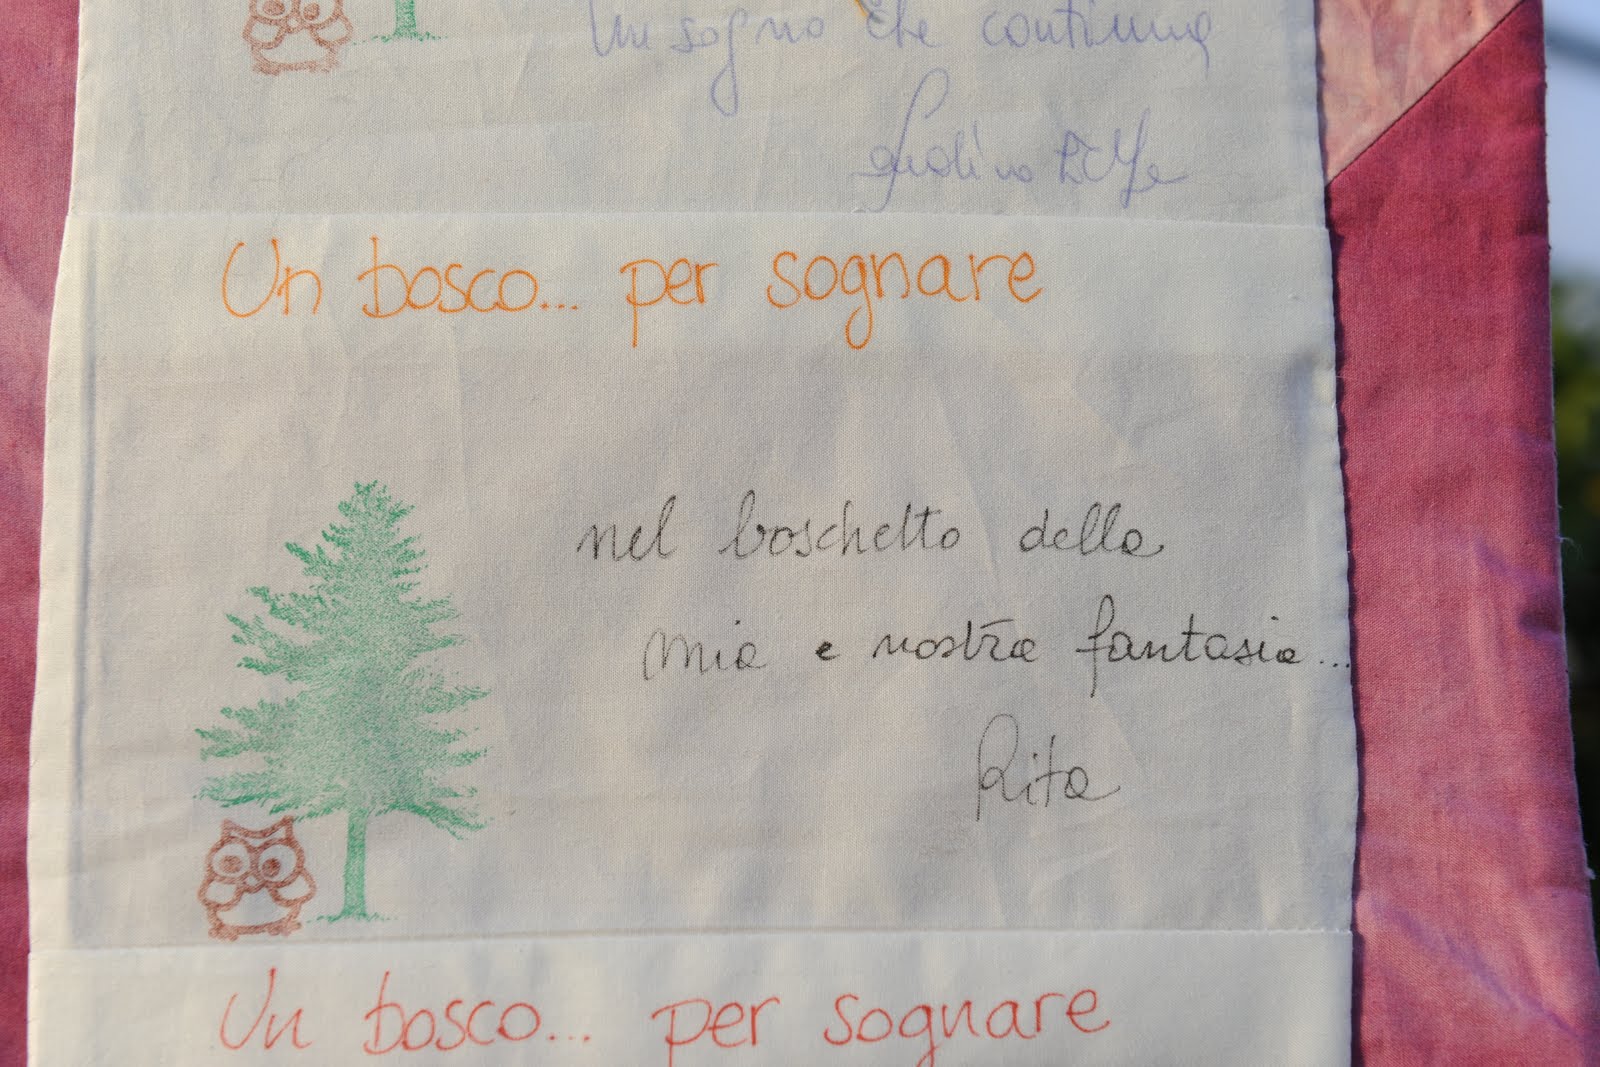 Un sogno che continua
Un bosco... per sognare
nel boschetto della
mia e nostra fantasia...
Rita
Un bosco... per sognare